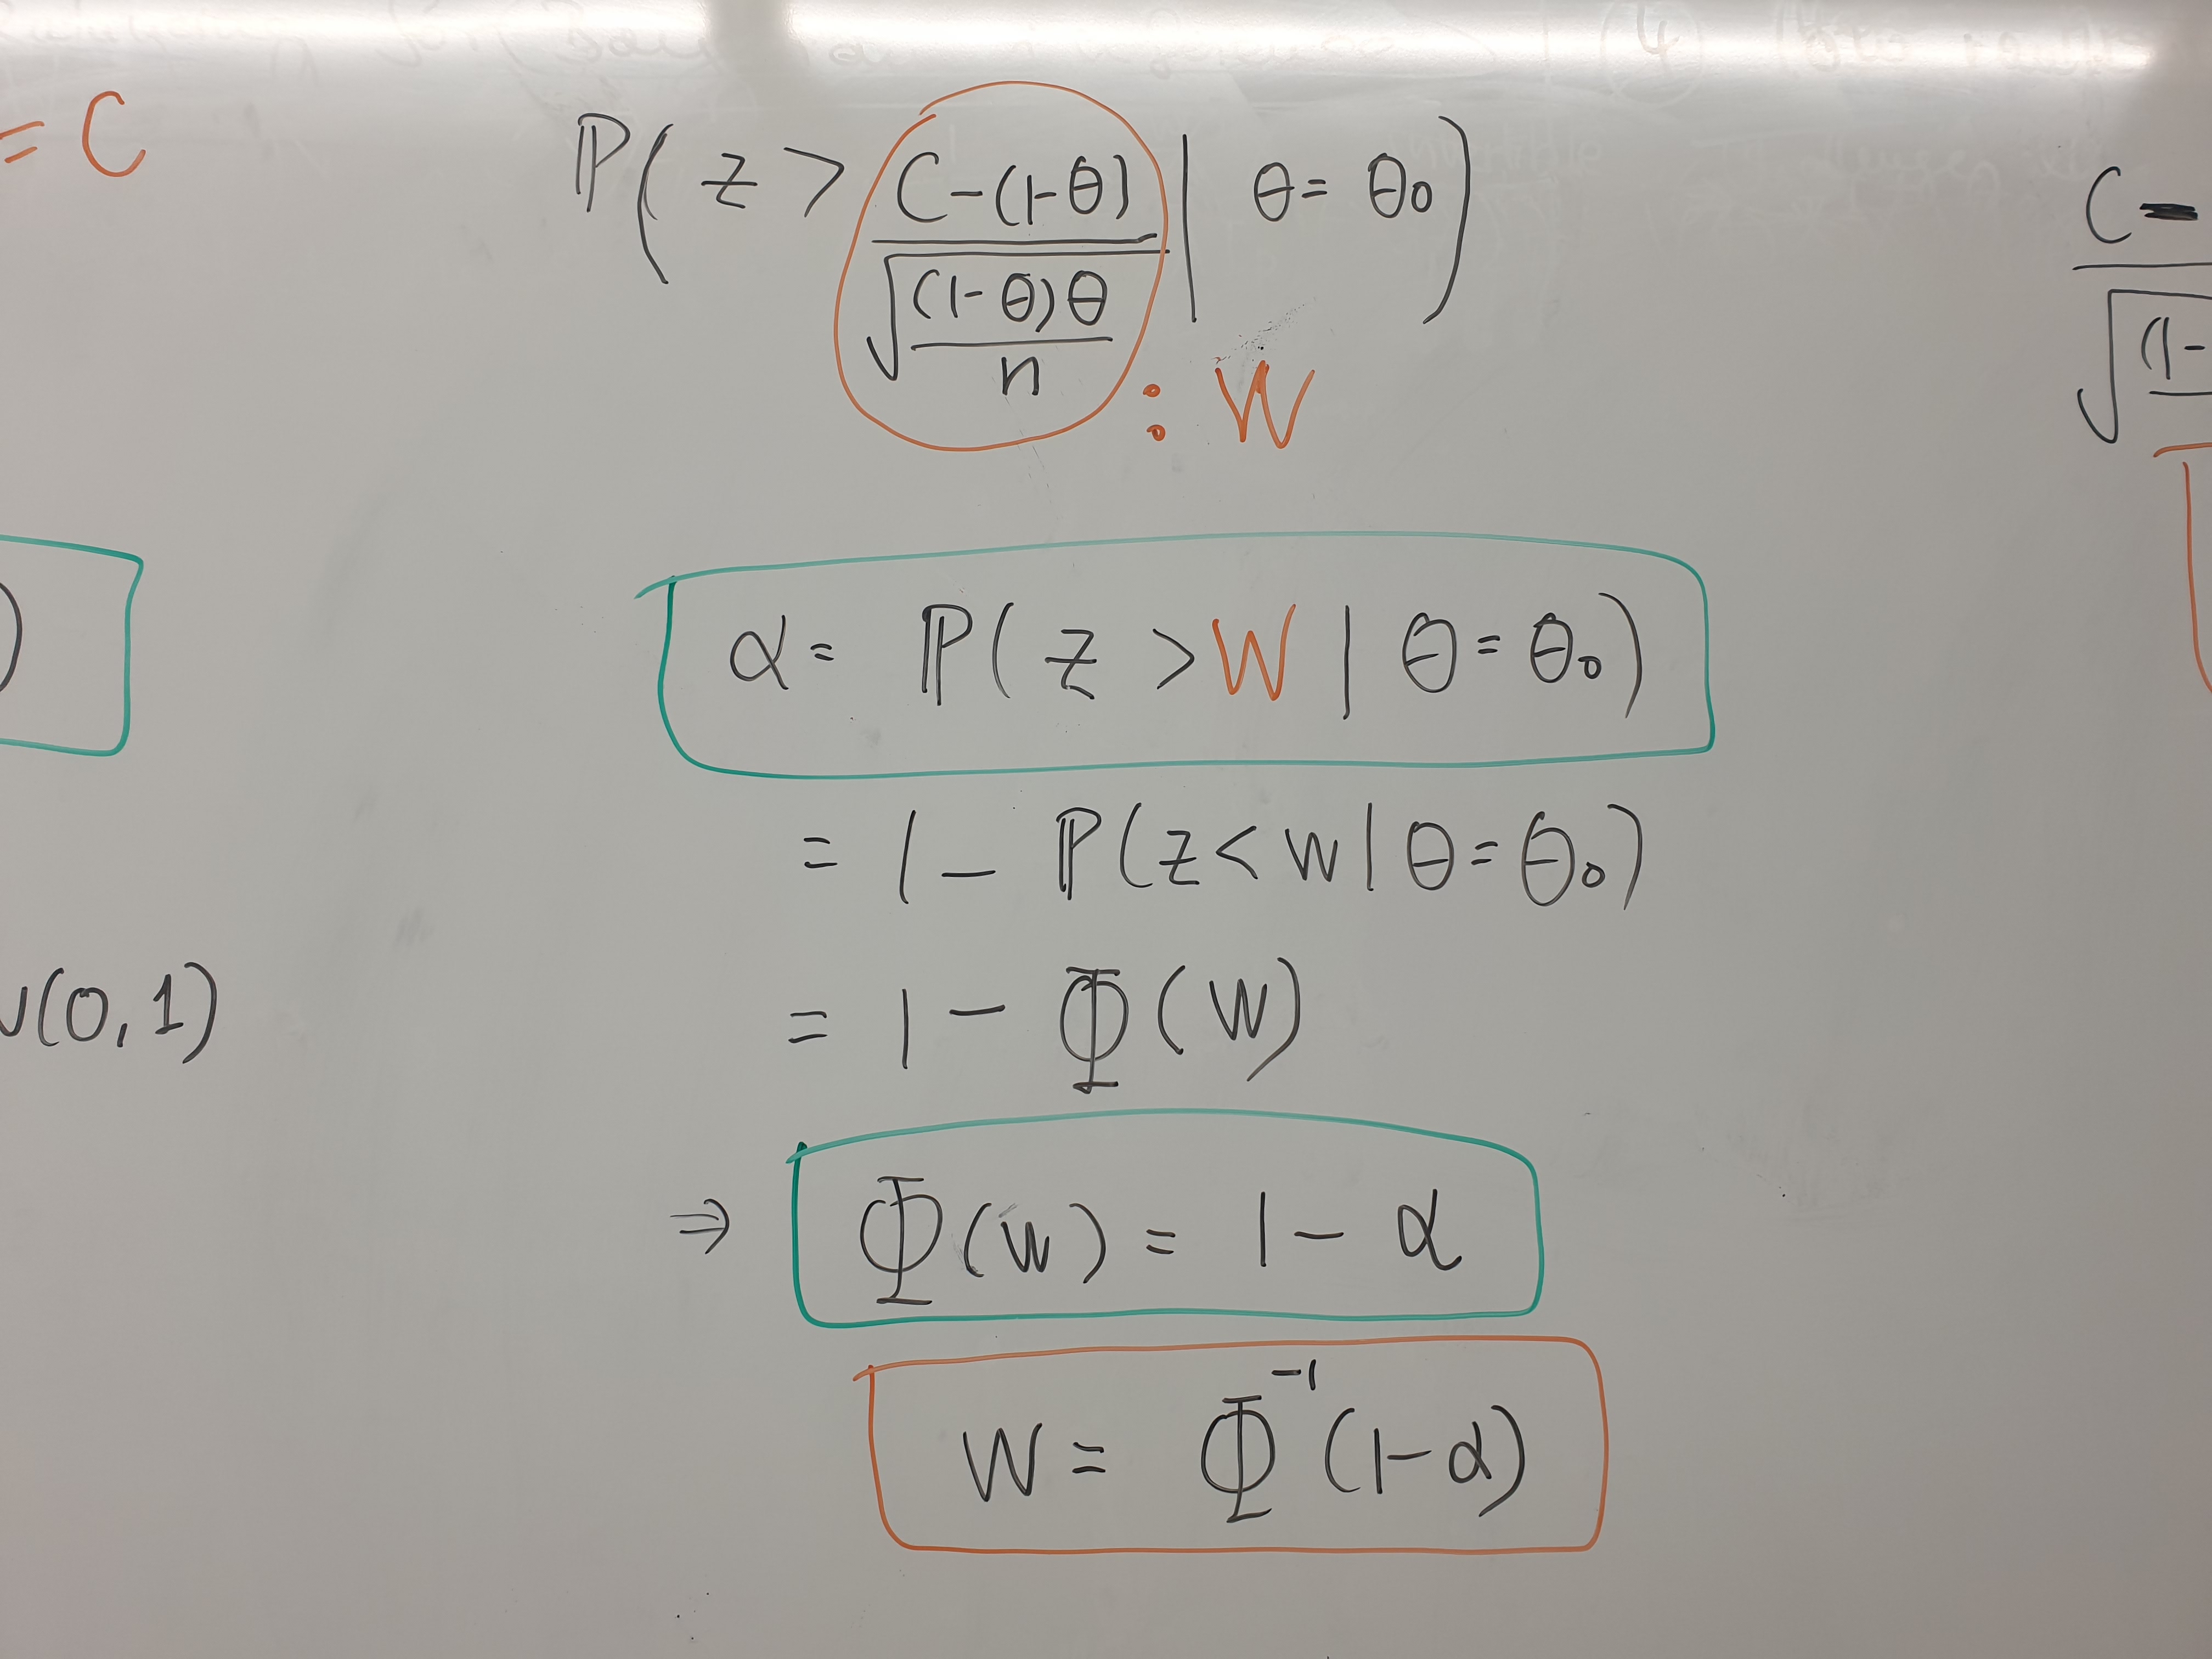 = C
P( z > (C-(1-θ)) / √((1-θ)θ / n) | θ = θ₀ )
: W
C-
√(1-
α = P( z > W | θ = θ₀ )
)
= 1 - P( z < W | θ = θ₀ )
= 1 - Φ(W)
(0,1)
⇒ Φ(W) = 1 - α
W = Φ⁻¹(1-α)